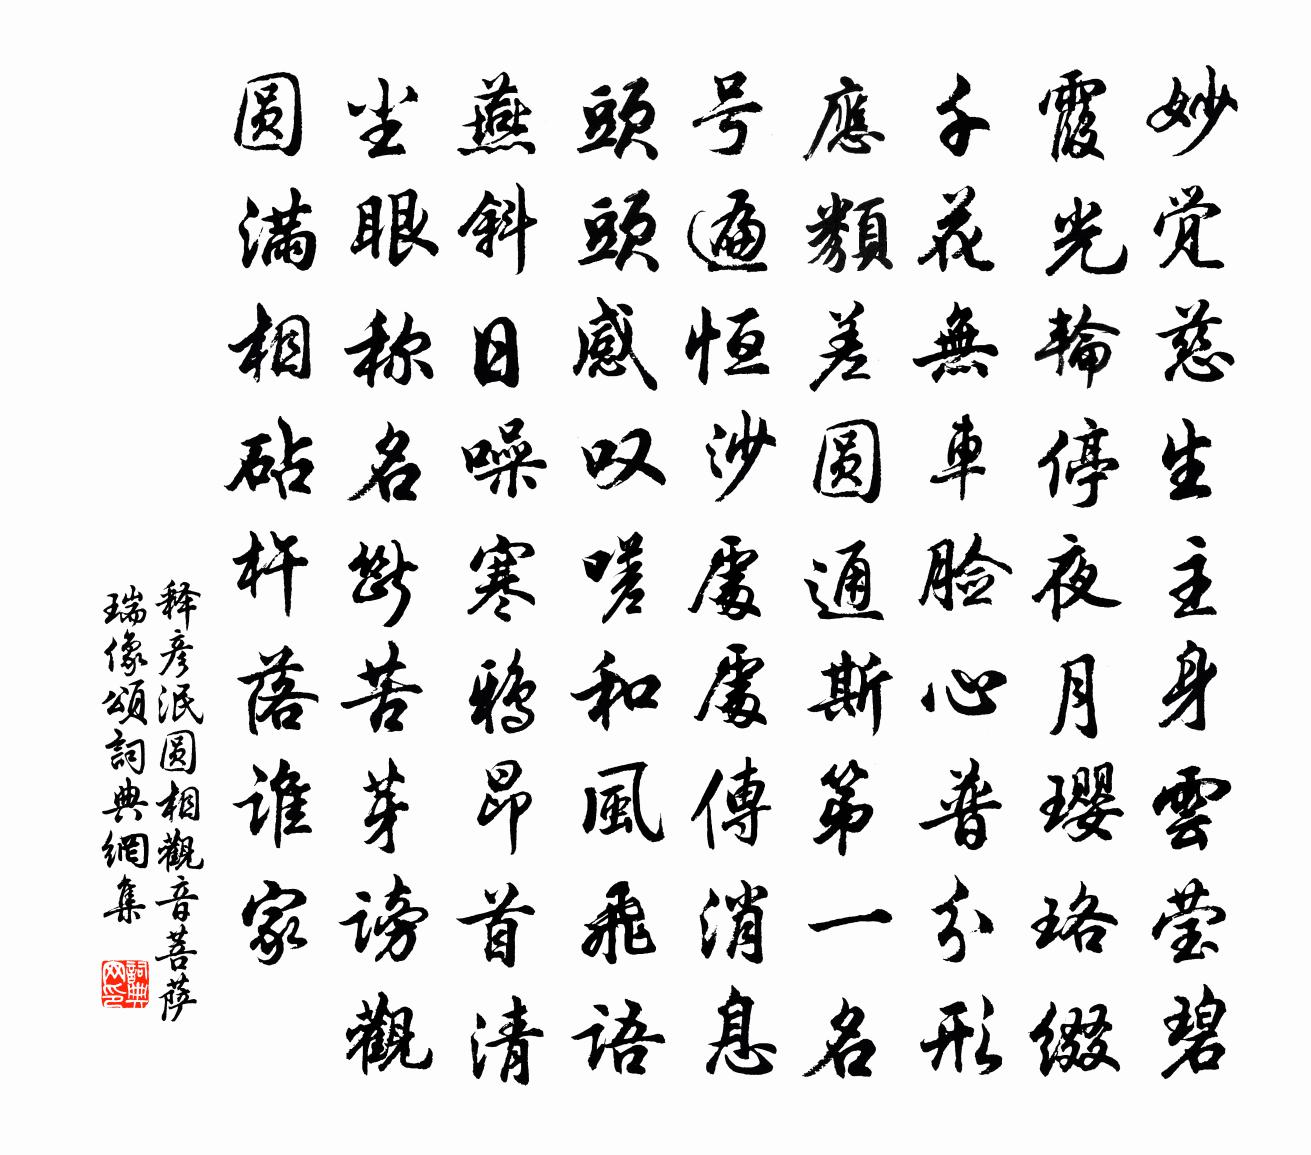 妙觉慈生主身雲莹碧
霞光輪停夜月璎珞缀
千花無車脸心普分形
應類差圆通斯第一名
号遍恒沙處處傳消息
頭頭感叹嗟和風飛語
燕斜日噪寒鸦昂首清
坐眼称名断苦芽謗觀
圆满相砧杵落谁家
释彦泯圆相觀音菩萨
瑞像頌詞典網集
詞典网印